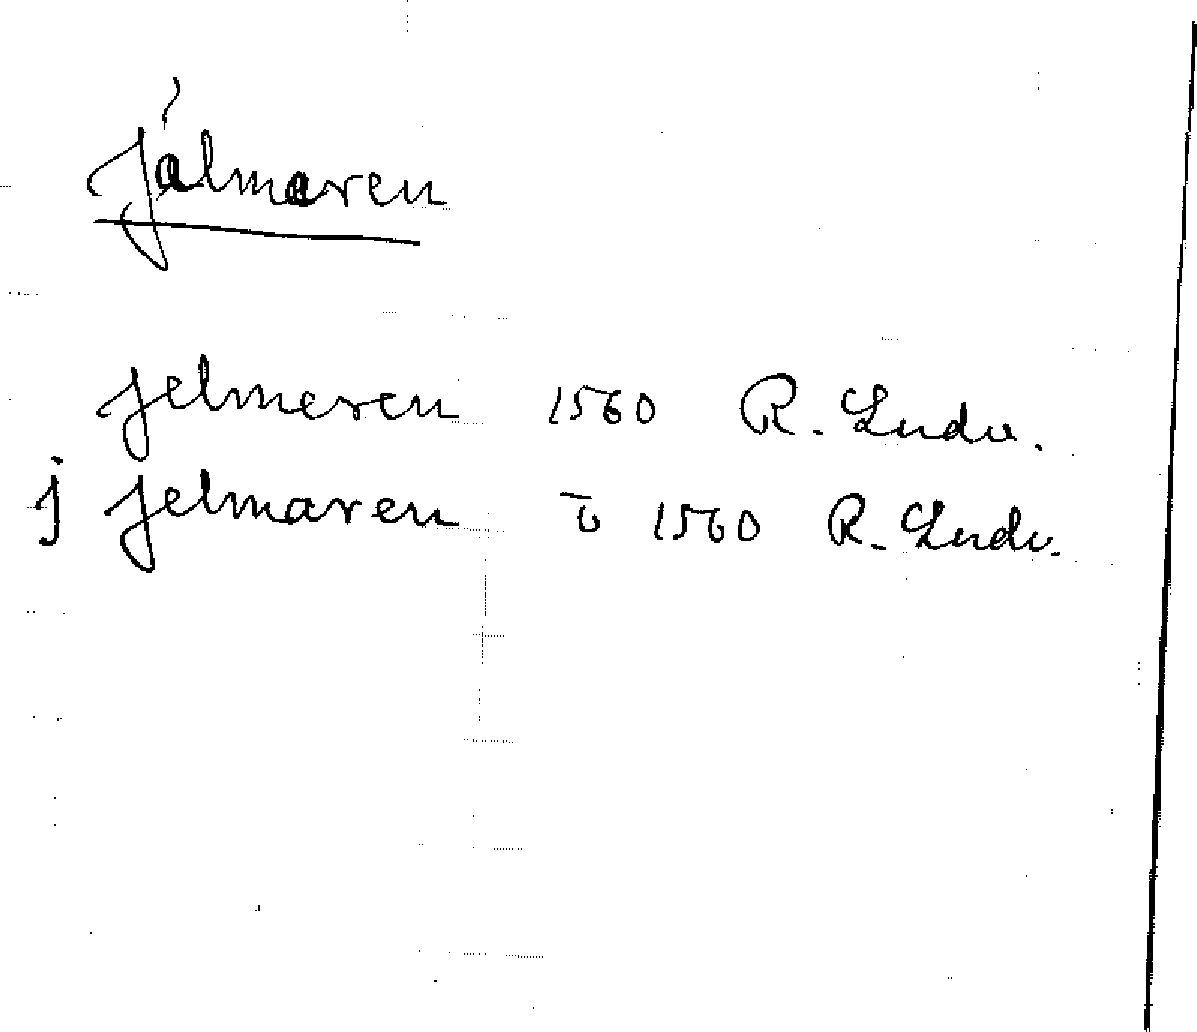 Jälmaren
Jelmeren 1560 R. Ludv.
j Jelmaren ö 1560 R. Ludv.